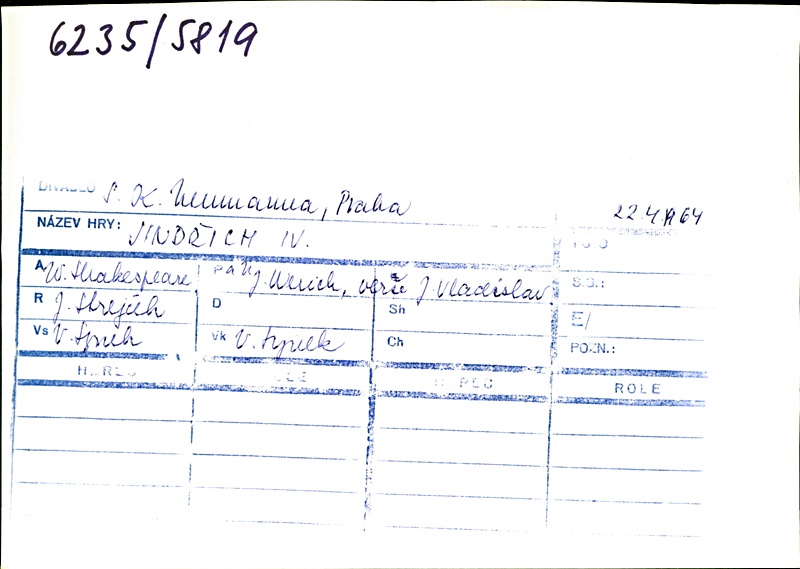 6235/5819
DIVADLO S. K. Neumanna, Praha 22.4.64
NÁZEV HRY: JINDŘICH IV.
A W. Shakespeare Př J. Werich, verše J. Vladislav. S.B.:
R J. Strejček D Sh E/
Vs V. Synek Vk V. Synek Ch POZN.:
HEREC ROLE HEREC ROLE